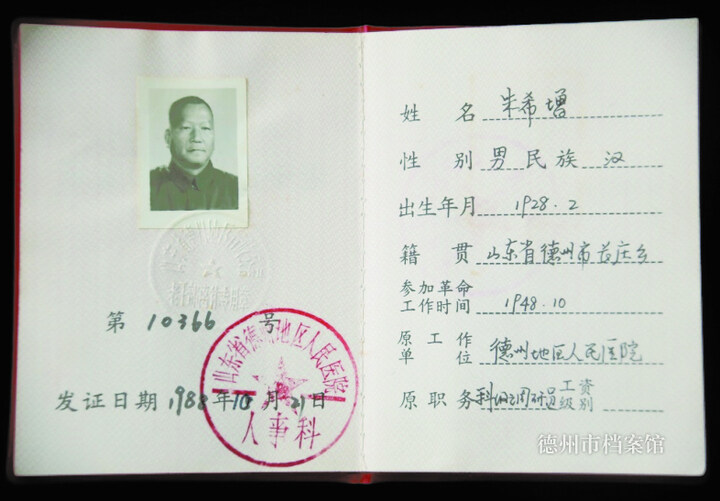 第 10366 号
发证日期 1988年10月21日
山东省德州地区人民医院
人事科
姓名 朱希增
性别 男 民族 汉
出生年月 1928.2
籍贯 山东省德州市 庄乡
参加革命
工作时间 1948.10
原工作
单位 德州地区人民医院
原职务 科 调研员 工资
级别
德州市档案馆